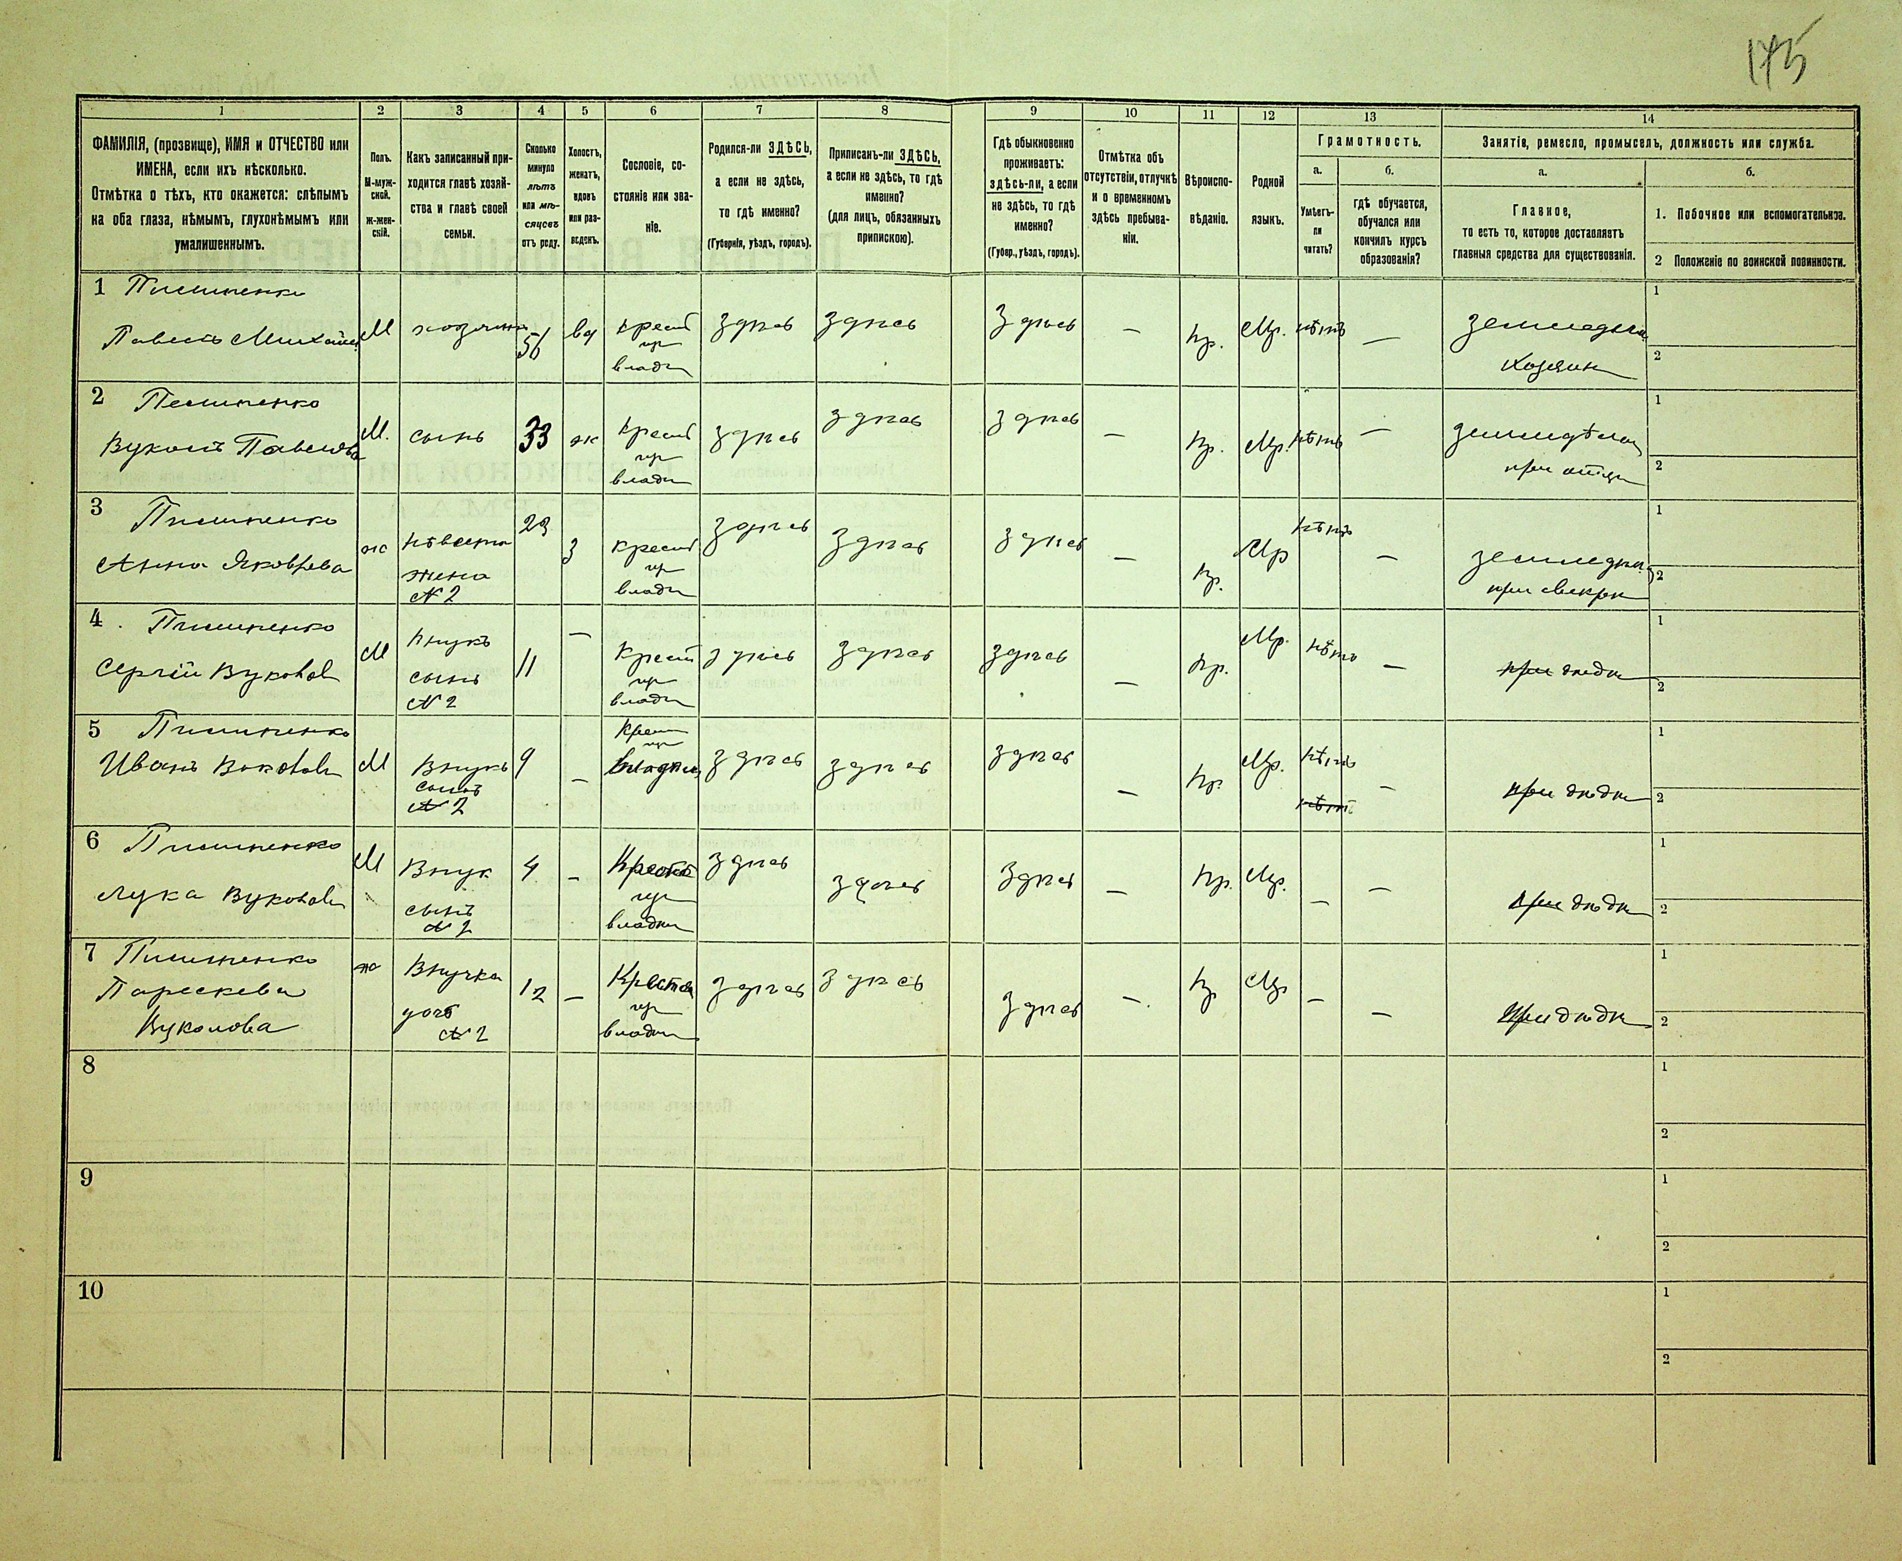 175
1
2
3
4
5
6
7
8
9
10
11
12
13
14
ФАМИЛІЯ, (прозвище), ИМЯ и ОТЧЕСТВО или
ИМЕНА, если ихъ нѣсколько.
Отмѣтка о тѣхъ, кто окажется: слѣпымъ
на оба глаза, нѣмымъ, глухонѣмымъ или
умалишеннымъ.
Полъ.
М-муж-
ской.
Ж-жен-
скій.
Какъ записанный при-
ходится главѣ хозяй-
ства и главѣ своей
семьи.
Сколько
минуло
лѣтъ
или мѣ-
сяцевъ
отъ роду.
Холостъ,
женатъ,
вдовъ
или раз-
веденъ.
Сословіе, со-
стояніе или зва-
ніе.
Родился-ли ЗДѢСЬ,
а если не здѣсь,
то гдѣ именно?
(Губернія, уѣздъ, городъ).
Приписанъ-ли ЗДѢСЬ,
а если не здѣсь, то гдѣ
именно?
(для лицъ, обязанныхъ
припискою).
Гдѣ обыкновенно
проживаетъ:
здѣсь-ли, а если
не здѣсь, то гдѣ
именно?
(Губер., уѣздъ, городъ).
Отмѣтка объ
отсутствіи, отлучкѣ
и о временномъ
здѣсь пребыва-
ніи.
Вѣроиспо-
вѣданіе.
Родной
языкъ.
Грамотность.
а.
Умѣетъ-
ли
читать?
б.
гдѣ обучается,
обучался или
кончилъ курсъ
образованія?
Занятіе, ремесло, промыселъ, должность или служба.
а.
Главное,
то есть то, которое доставляетъ
главныя средства для существованія.
б.
1. Побочное или вспомогательное.
2 Положеніе по воинской повинности.
1 Пилипенко
Павелъ Михайл
М
хозяинъ
56
вд
крест
влад
здѣсь
здѣсь
здѣсь
—
пр.
Мр.
нѣтъ
—
земледѣл
хозяин
1
2
2 Пилипенко
Вуколъ Павловъ
М.
сынъ
33
ж
крест
влад
здѣсь
здѣсь
здѣсь
—
пр.
Мр.
нѣтъ
—
земледѣл
при отцѣ
1
2
3 Пилипенко
Анна Яковлева
ж
невѣстка
жена
№ 2
23
з
крест
влад
здѣсь
здѣсь
здѣсь
—
пр.
Мр
нѣтъ
—
земледѣл
при свекрѣ
1
2
4 Пилипенко
Сергѣй Вуколов
М
внукъ
сынъ
№ 2
11
—
крест
влад
здѣсь
здѣсь
здѣсь
—
пр.
Мр.
нѣтъ
—
при дѣдѣ
1
2
5 Пилипенко
Иванъ Вуколов
М
Внукъ
сынъ
№ 2
9
—
крест
владѣл
здѣсь
здѣсь
здѣсь
—
пр.
Мр.
нѣтъ
нѣтъ
—
при дѣдѣ
1
2
6 Пилипенко
Лука Вуколов
М
Внук
сынъ
№ 2
4
—
Крест
владѣ
здѣсь
здѣсь
здѣсь
—
пр.
Мр.
—
—
при дѣдѣ
1
2
7 Пилипенко
Параскева
Вуколова
ж
Внучка
доч
№ 2
12
—
Крестья
владѣ
здѣсь
здѣсь
здѣсь
—
пр
Мр
—
—
при дѣдѣ
1
2
8
1
2
9
1
2
10
1
2